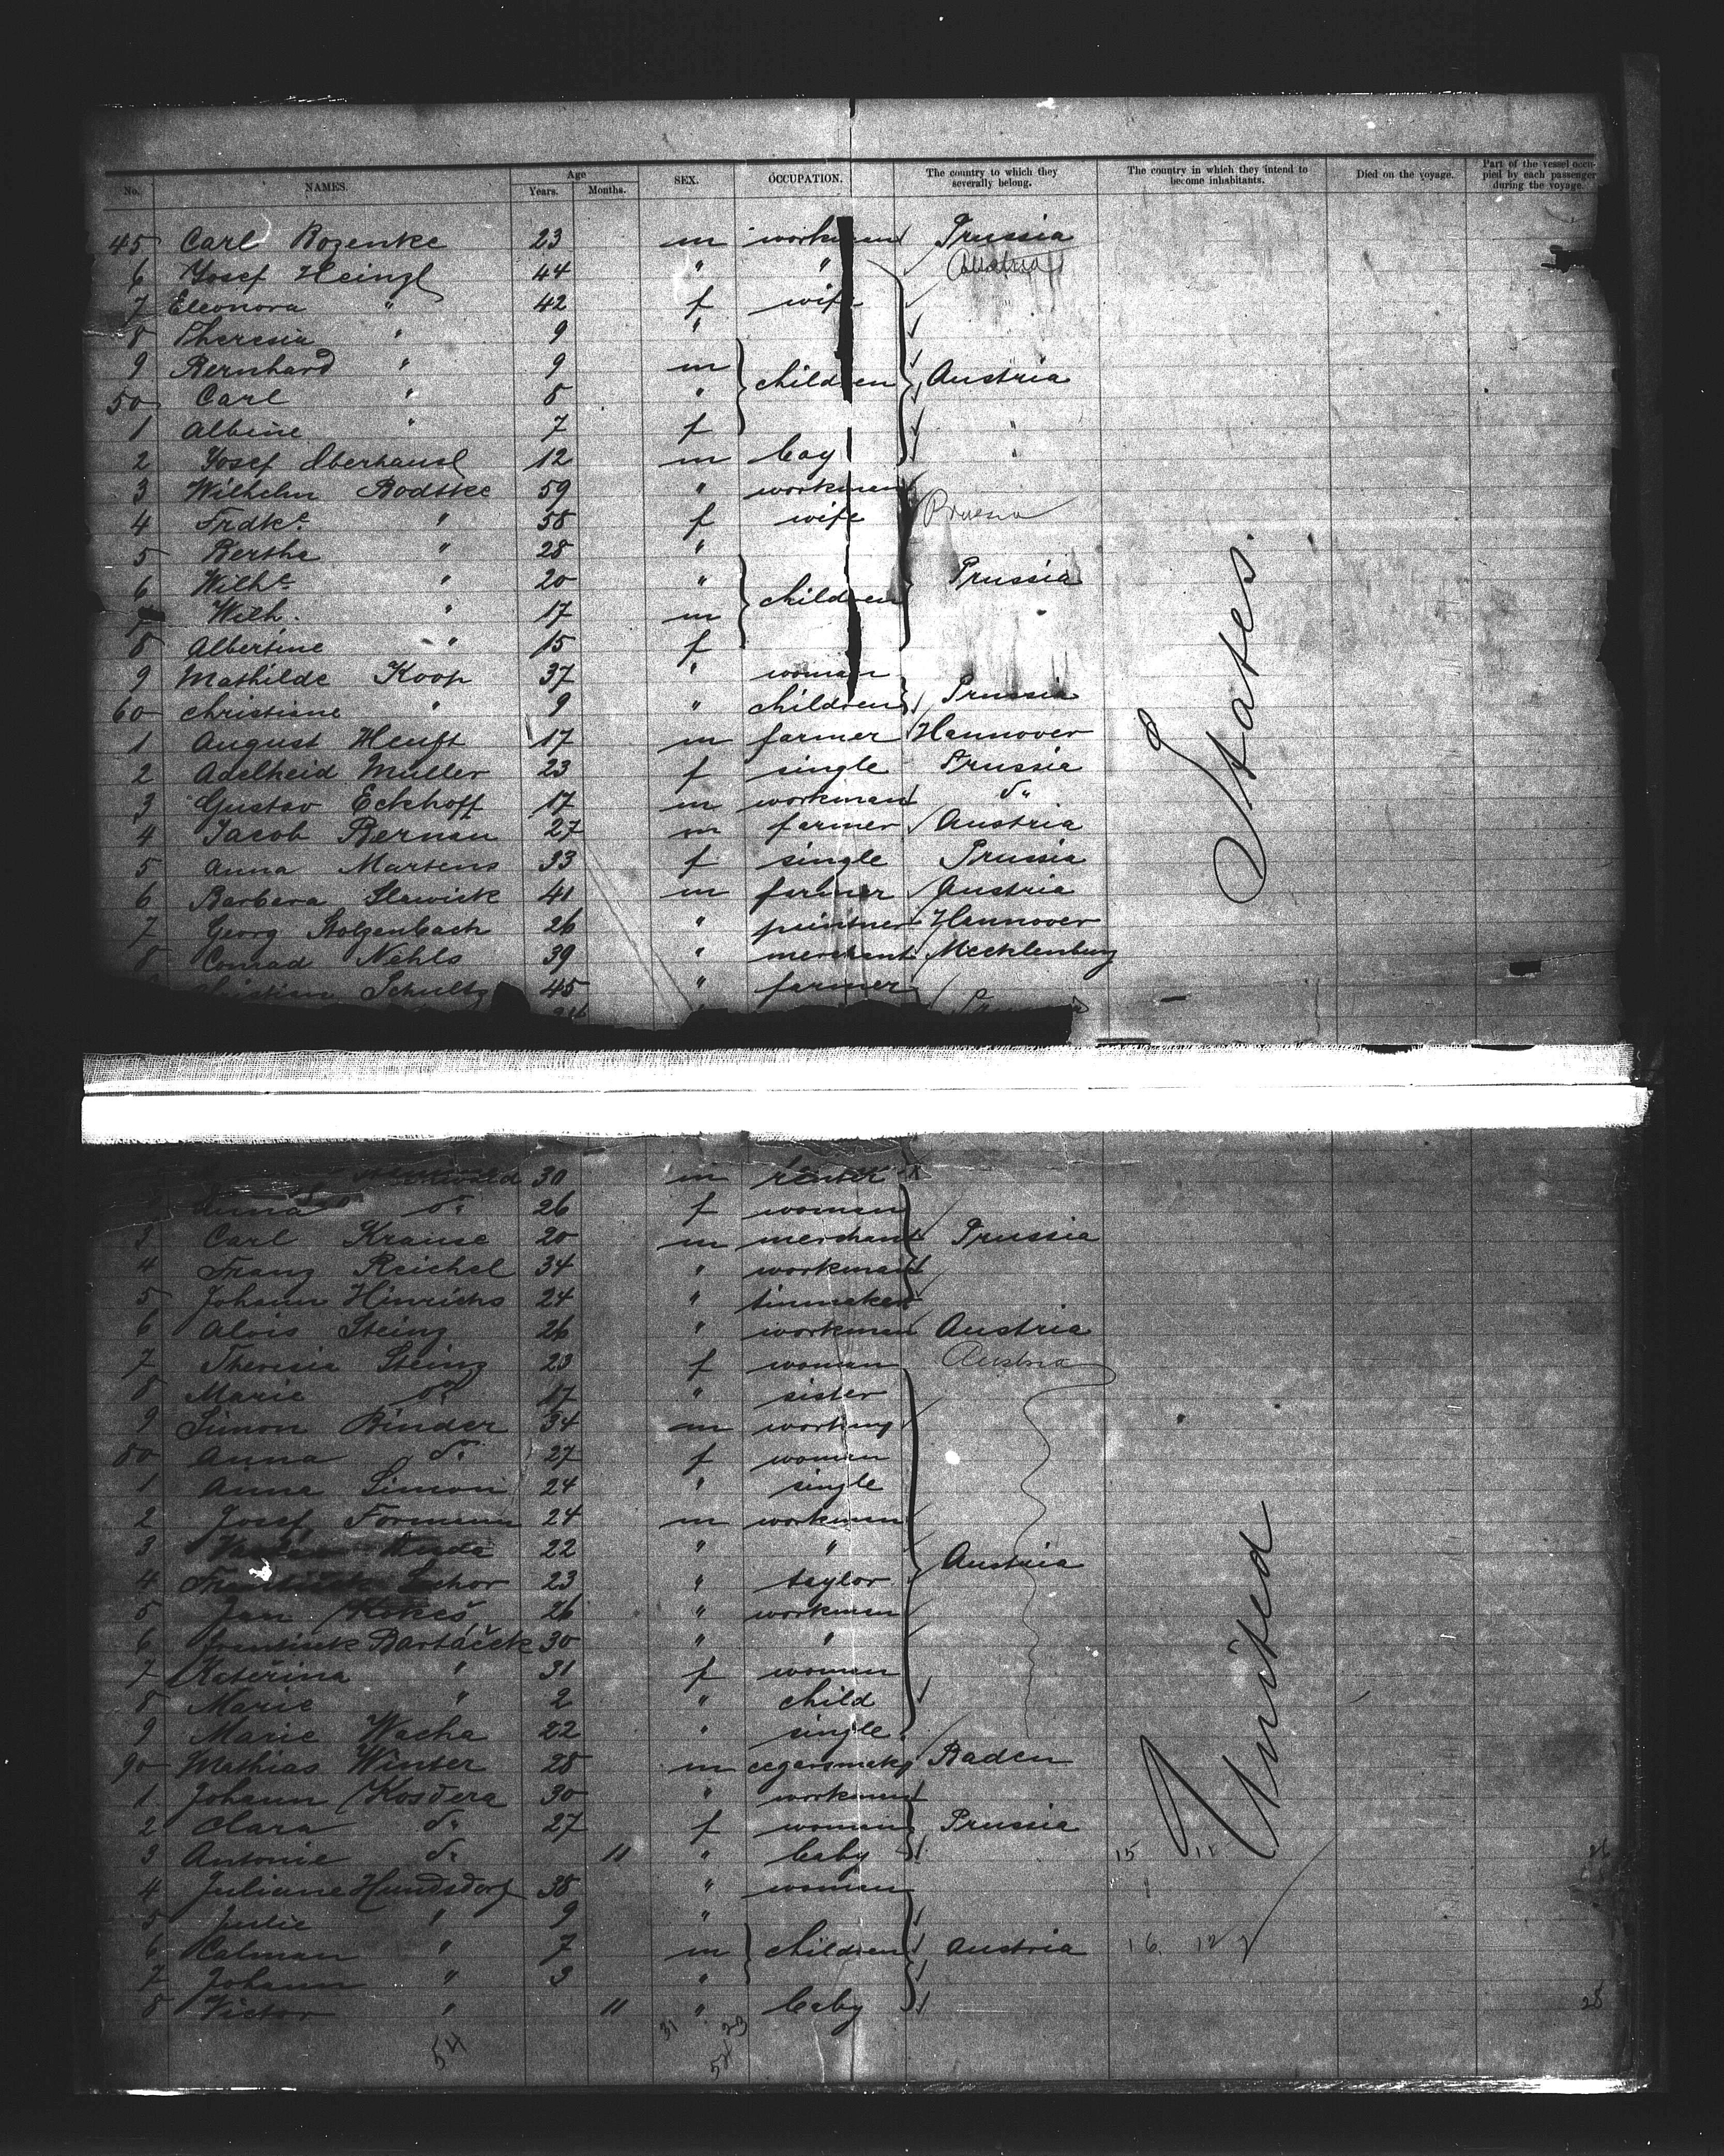 No. NAMES. Age Years. Months. SEX. OCCUPATION. The country to which they severally belong. The country in which they intend to become inhabitants. Died on the voyage. Part of the vessel occupied by each passenger during the voyage.
45 Carl Rozenke 23 m workman Prussia
6 Josef Heinzl 44 " "
7 Eleonora " 42 f wife
8 Theresia " 9 "
9 Bernhard " 9 m
50 Carl " 8 " children Austria
1 Albine " 7 f "
2 Josef Oberhausl 12 m boy "
3 Wilhelm Rodtke 59 " workman
4 Frdke " 58 f wife Prussia
5 Bertha " 28 "
6 Wilhe " 20 " children Prussia
7 Wilh. " 17 m
8 Albertine " 15 f
9 Mathilde Koop 37 " woman
60 Christiane " 9 " children Prussia
1 August Heuft 17 m farmer Hannover
2 Adelheid Muller 23 f single Prussia
3 Gustav Eckhoff 17 m workman do
4 Jacob Bernan 27 m farmer Austria
5 Anna Martens 33 f single Prussia
6 Barbara Slawick 41 m farmer Austria
7 Georg Stolzenbach 26 " Hannover
8 Conrad Nehls 39 " merchant Mecklenburg
Christian Schultz 45 " farmer
States.
30 m
Anna do 26 f woman
3 Carl Krause 20 m merchant Prussia
4 Franz Reichel 34 " workman
5 Johann Hinrichs 24 " tinmaker
6 Alois Steinz 26 " workman Austria
7 Theresia Steinz 23 f woman Austria
8 Marie do 17 " sister
9 Simon Binder 34 m working
80 Anna do 27 f woman
1 Anna Simon 24 " single
2 Josef Formann 24 m workman
3 22 " " Austria
4 23 " taylor
5 Jan Kokeš 26 " workman
6 Frantisek Bartáček 30 " "
7 Kateřina " 31 f woman
8 Marie " 2 " child
9 Marie Wacha 22 " single
90 Mathias Winter 28 m cegarsmaker Baden
1 Johann Kosdera 30 " workman
2 Clara do 27 f woman Prussia
3 Antonie do 11 " baby 15
4 Juliane Hundsdorf 38 " woman
5 Julie " 9 "
6 Calman " 7 m children Austria 16. 12
7 Johann " 3 "
8 Victor " 11 " baby 28
United
54 31 23